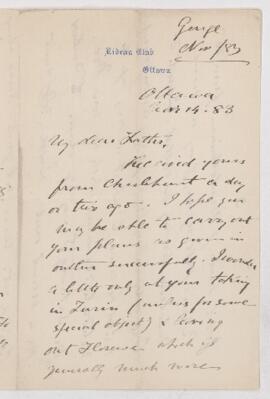 George
Nov/83
Rideau Club
Ottawa
Ottawa
Nov 14. 83
My dear Father,
Received yours
from Chislehurst a day
or two ago. I hope you
may be able to carry out
your plans as given in
outline successfully. I wonder
a little only at your taking
in Turin (unless for some
special object) & leaving
out Florence which is
generally much more